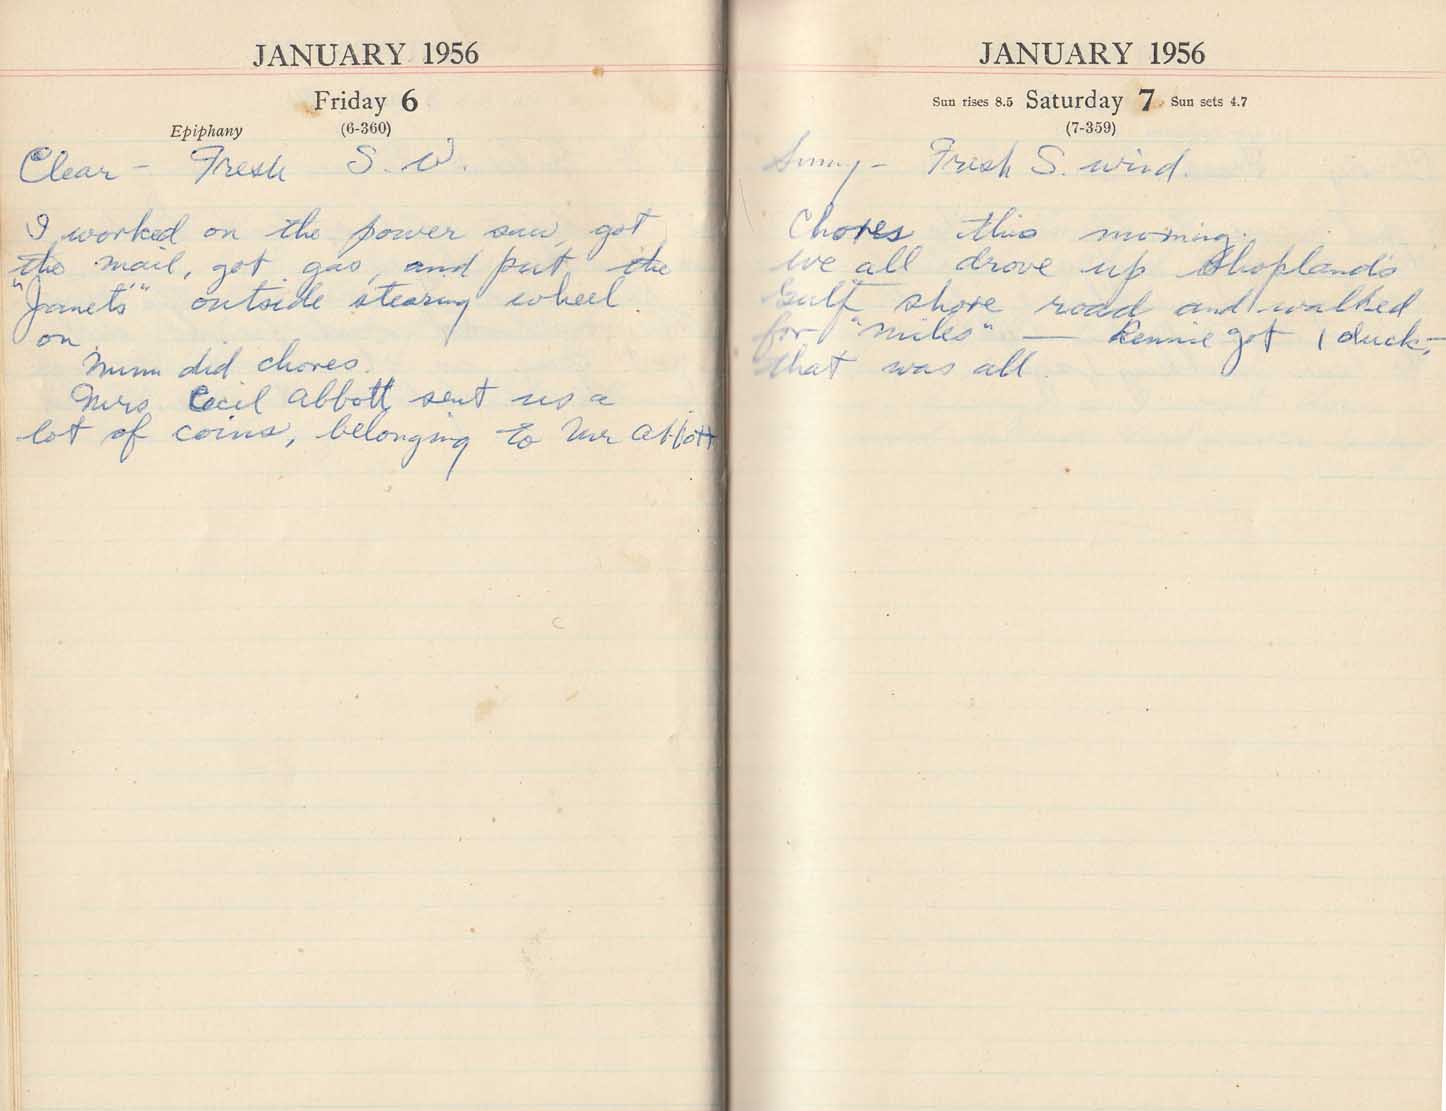 JANUARY 1956
Friday 6
Epiphany (6-360)
Clear - Fresh S. W.
I worked on the power saw, got
the mail, got gas, and put the
"Janet's" outside stearing wheel
on.
Mum did chores.
Mrs Cecil Abbott sent us a
lot of coins, belonging to Mr Abbott
JANUARY 1956
Sun rises 8.5 Saturday 7 Sun sets 4.7
(7-359)
Sunny - Fresh S. wind.
Chores this morning.
we all drove up Shopland's
Gulf shore road and walked
for "miles" — Rennie got 1 duck,-
that was all.